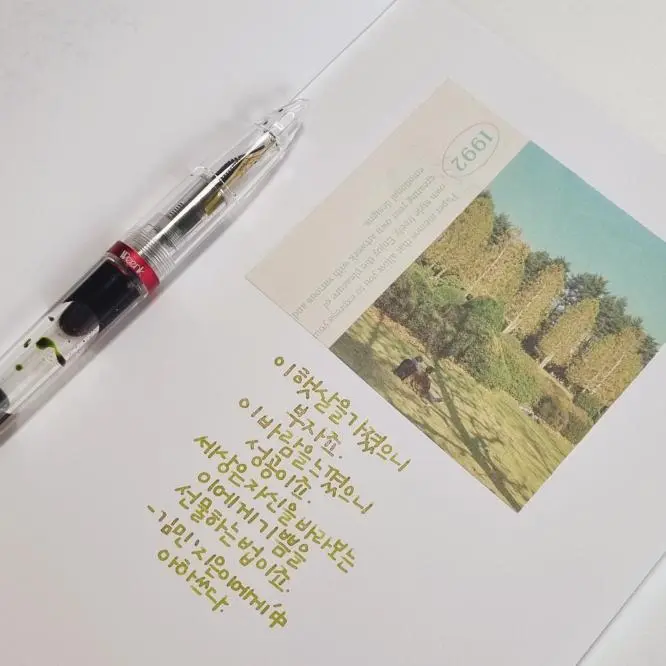 1992
Paper texture that allow you to express your
own style freely. Enjoy the pleasure of
creating your own artwork with various and
Weenk
이 햇살을 가졌으니
부자죠.
이 바람을 느꼈으니
성공이죠.
세상은 자신을 바라보는
이에게 기쁨을
선물하는 법이죠.
-김민, 지은이에게 中
아하쓰다.